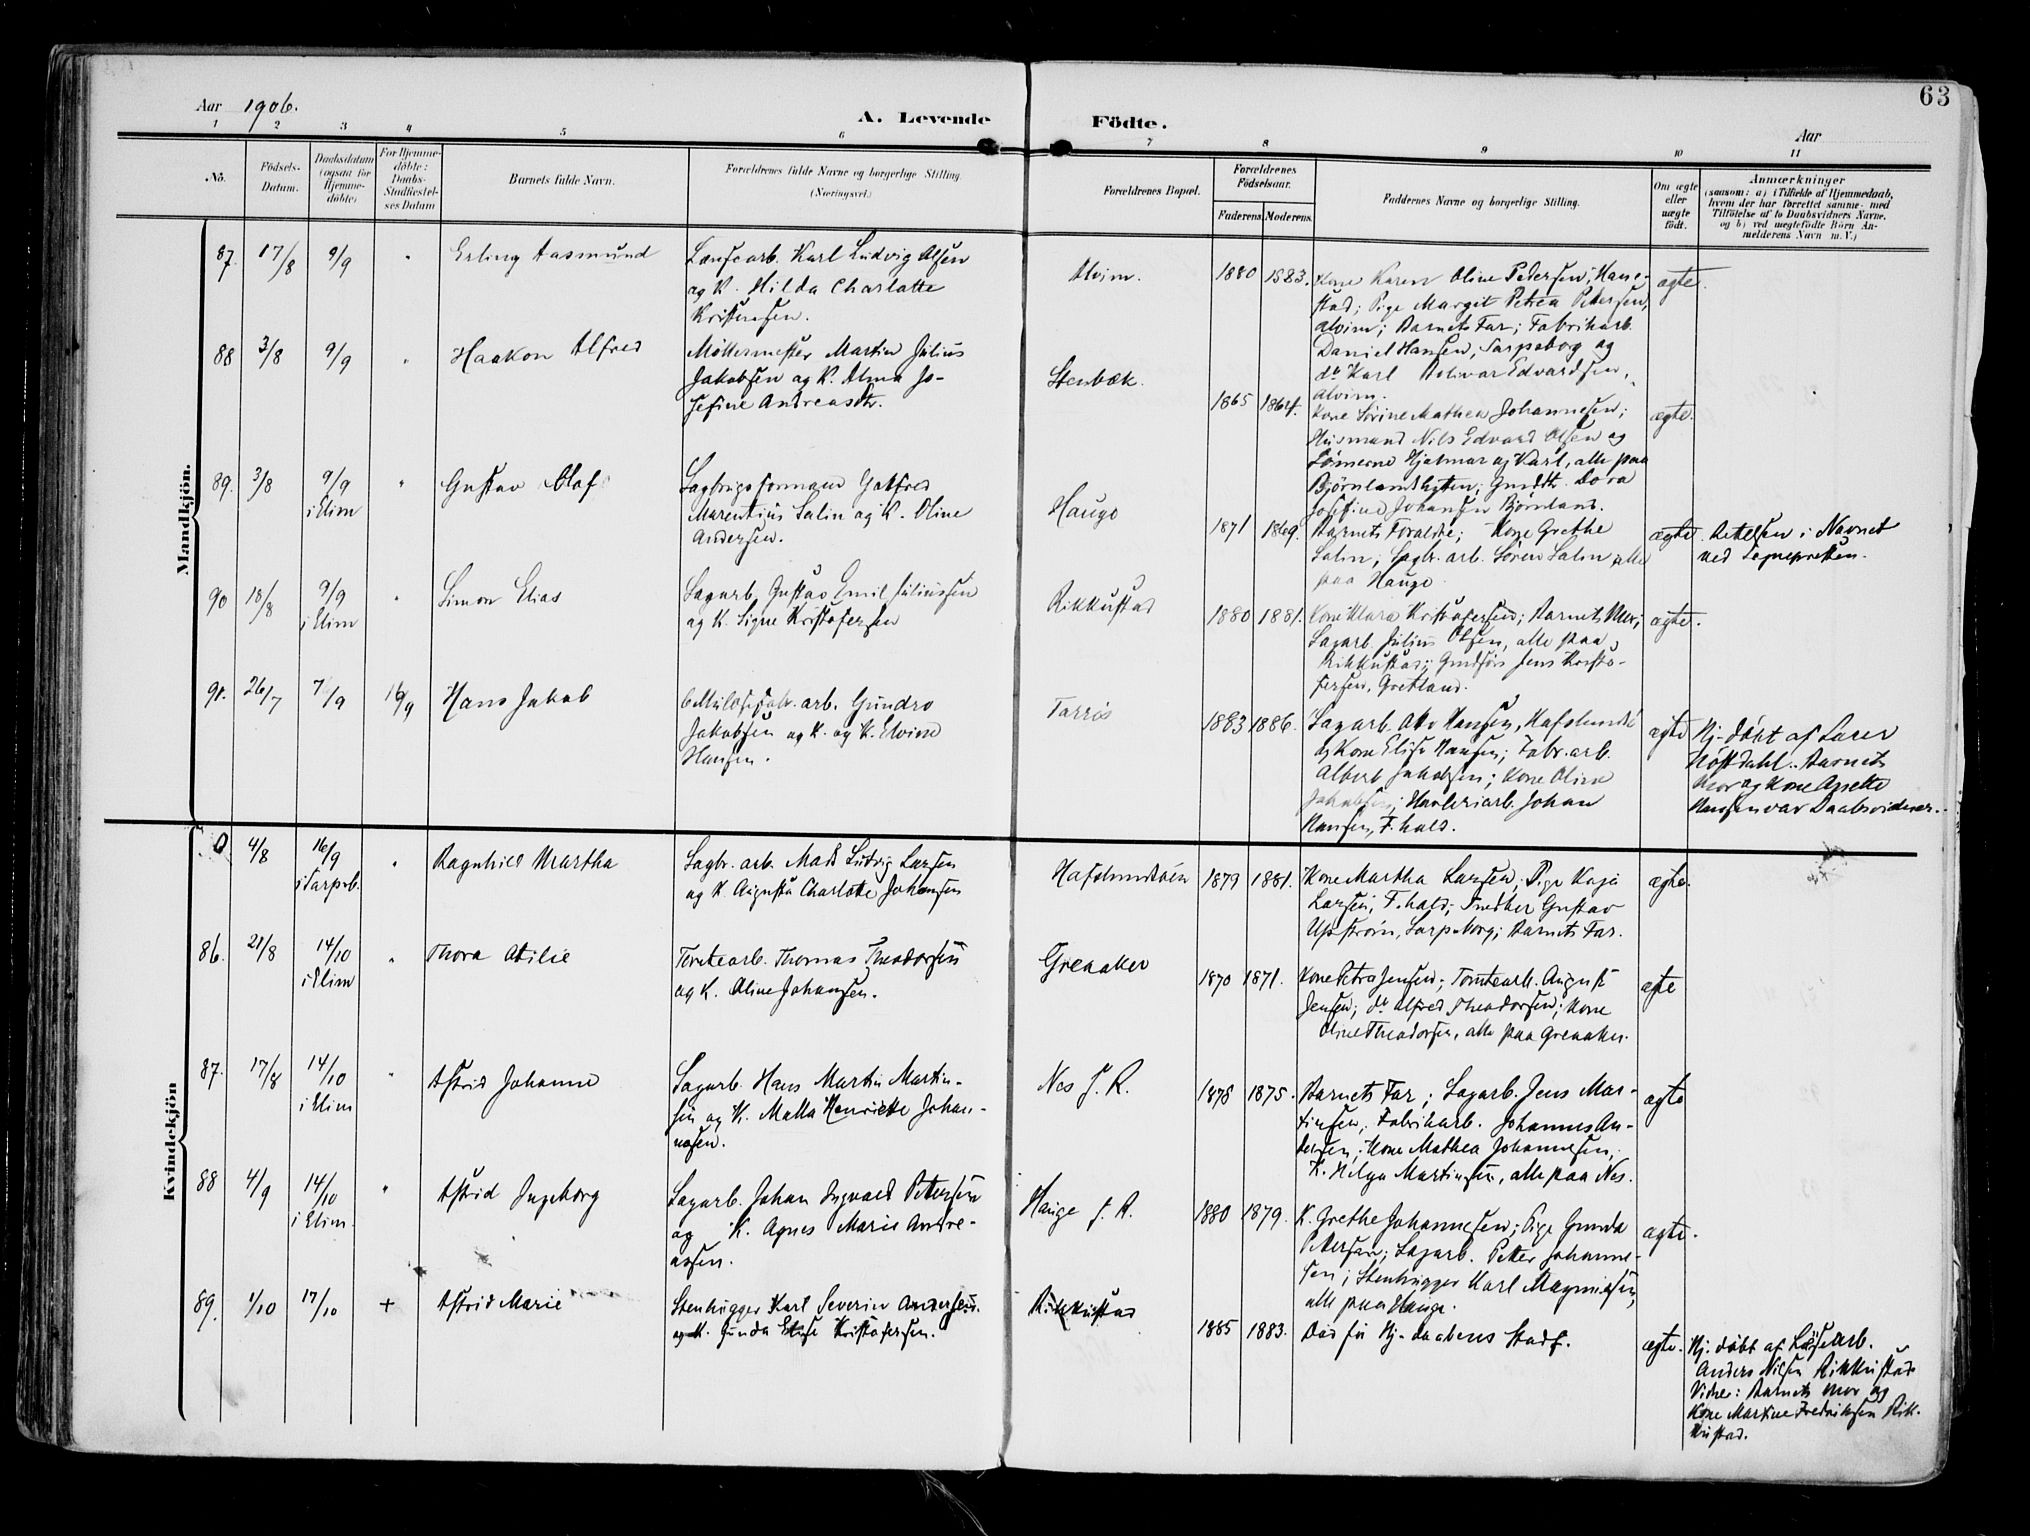 63
Aar 1906.
A. Levende Födte.
Aar
1 2 3 4 5 6 7 8 9 10 11
No.
Födsels-
Datum.
Daabsdatum
(ogsaa for
Hjemme-
døbte)
For Hjemme-
döbte:
Daabs-
Stadfæstel-
ses Datum
Barnets fulde Navn.
Forældrenes fulde Navne og borgerlige Stilling
(Næringsvei.)
Forældrenes Bopæl.
Forældrenes
Födselsaar.
Faderens. Moderens.
Faddernes Navne og borgerlige Stilling.
Om ægte
eller
uægte
födt.
Anmærkninger
(saasom: a) i Tilfælde af Hjemmedaab,
hvem der har forrettet samme med
Tilföielse af to Daabsvidners Navne.
og b) ved uægtefödte Börn An-
melderens Navn m.V.)
Mandkjön.
87. 17/8 9/9 " Erling Aasmund
Karl Ludvig Olsen
og K. Hilda Charlotte
Kristensen.
Alvim.
1880 1883.
Kone Karen Oline Pedersen, Hane-
stad; Pige Margit Petrea Petersen,
Alvim; Barnets Far; Fabrikarb.
Daniel Hansen, Sarpsborg og
do Karl Bolivar Edvardsen,
Alvim.
ægte.
88 3/8 9/9 " Haakon Alfred
Møllermester Martin Julius
Jakobsen og K. Alma Jo-
sefine Andreasdtr.
Stenbæk.
1865 1864.
Kone Sørine Mathea Johannesen;
Husmand Nils Edvard Olsen og
Sønnerne Hjalmar og Karl, alle paa
Bjørnlandhytten; Dora
Josefine Johansen Bjørnland.
ægte.
89. 3/8 9/9
i Elim
" Gustav Olaf
Sagbrugsformand Gotfred
Marentius Salin og K. Oline
Andersen.
Hauge
1871 1869.
Barnets Forældre; Kone Grethe
Salin; Sagbr. arb. Søren Salin alle
paa Hauge.
ægte.
Rettelsen i Navnet
ved Sognepresten.
90 18/8 9/9
i Elim
" Simon Elias
Sagarb. Gustav Emil Juliussen
og K. Signe Kristofersen
Rikkustad
1880 1881.
Kone Klara Kristofersen; Barnets Mor;
Sagarb. Julius Olsen, alle paa
Rikkustad; Jens Kristo-
fersen, Gretland.
ægte.
91. 26/7 7/9 16/9 Hans Jakob
arb. Gundro
Jakobsen og K. og K. Elvine
Hansen.
Tarris
1883 1886.
Sagarb. Hansen, Hafslundsö
og Kone Elise Hansen; Fabr. arb.
Albert Jakobsen; Kone Oline
Jakobsen; Johan
Hansen, F.hald.
ægte
Hj-døbt af Lærer
Høstdahl. Barnets
Mor og Kone Anette
Hansen var Daabsvidner.
Kvindekjön
4/8 16/9
i Sarpsb.
" Ragnhild Martha
Sagbr. arb. Mads Ludvig Larsen
og K. Augusta Charlotte Johansen
Hafslundsöen
1879 1881.
Kone Martha Larsen; Pige Kaja
Larsen, F.hald; Snedker Gustav
Upstrøm, Sarpsborg; Barnets Far.
ægte.
86. 21/8 14/10
i Elim
" Thora Otilie
Tomtearb. Thomas Theodorsen
og K. Oline Johansen.
Greaaker
1870 1871.
Kone Petra Jensen; Tomtearb. August
Jensen; do Alfred Theodorsen; Kone
Oline Theodorsen, alle paa Greaaker.
ægte
87. 17/8 14/10
i Elim
" Astrid Johanne
Sagarb. Hans Martin Martin-
sen og K. Malla Henriette Johan-
nesen.
Nes S. R.
1878 1875.
Barnets Far; Sagarb. Jens Mar-
tinsen; Fabrikarb. Johannes An-
dersen; Kone Mathea Johannesen;
K. Helga Martinsen, alle paa Nes.
ægte
88 4/9 14/10
i Elim.
" Astrid Ingeborg
Sagarb. Johan Ingvald Petersen
og K. Agnes Marie Andre-
assen.
Hauge S. R.
1880 1879.
K. Grethe Johannesen; Pige Gunda
Petersen; Sagarb. Petter Johanne-
sen; Stenhugger Karl Magnussen,
alle paa Hauge.
ægte.
89. 1/10 17/10 + Astrid Marie
Stenhugger Karl Severin Andersen.
og K. Gunda Elise Kristofersen.
Rikkustad
1885 1883.
Død før Hj-daabens Stadf.
ægte.
Hj. døbt af Løsearb.
Anders Nilsen Rikkustad
Vidner: Barnets Mor og
Kone Martine Fredriksen Rik-
kustad.